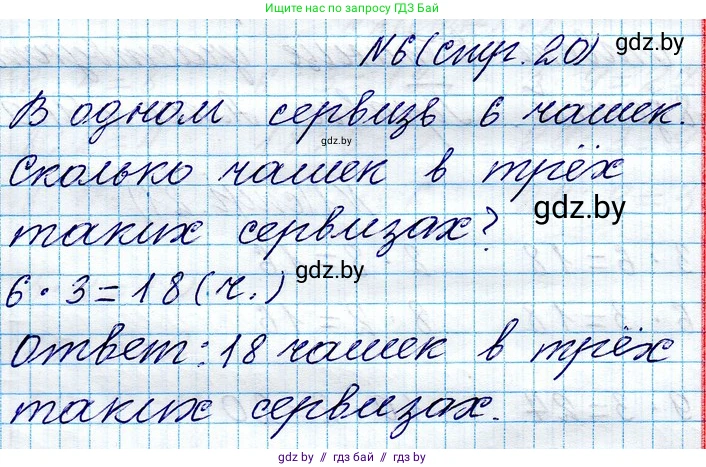 Ищите нас по запросу ГДЗ Бай
N6 (стр. 20) gdz.by
В одном сервизе 6 чашек.
gdz.by
Сколько чашек в трёх
gdz.by
таких сервизах?
gdz.by
6 · 3 = 18 (ч.)
Ответ: 18 чашек в трёх
таких сервизах.
gdz.by // гдз бай // gdz.by